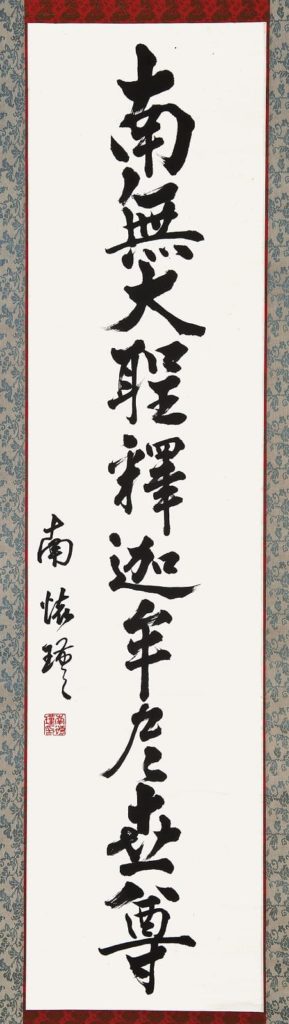 南無大聖釋迦牟尼世尊
南懷瑾